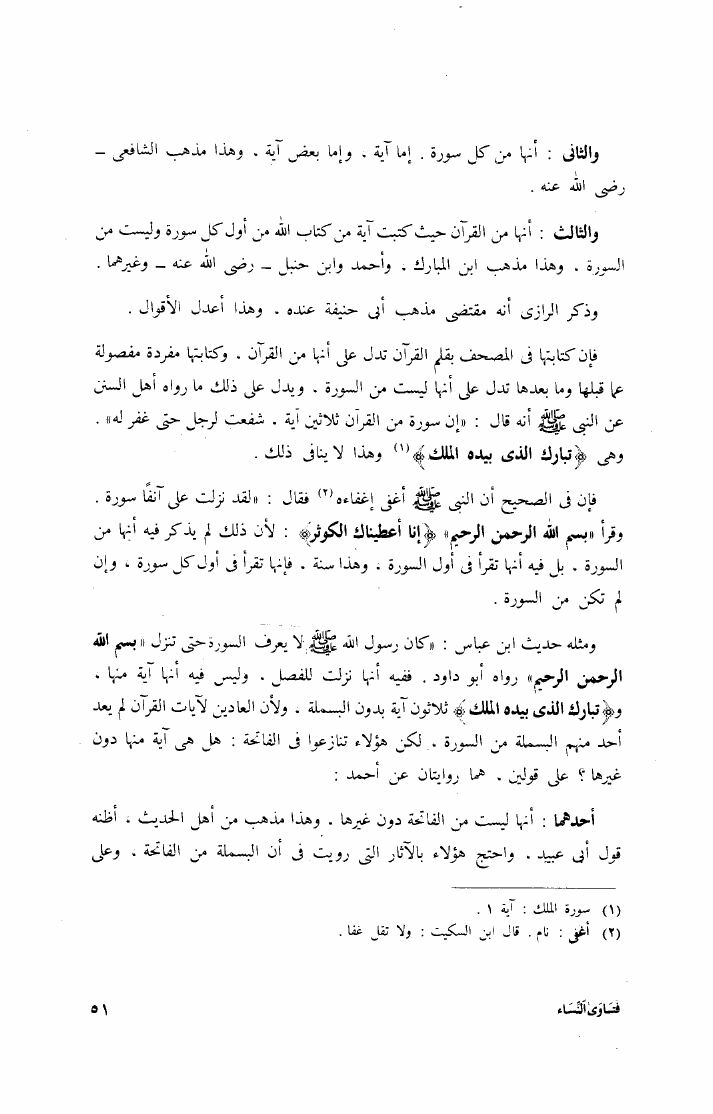 والثانى : أنها من كل سورة . إما آية . وإما بعض آية . وهذا مذهب الشافعى –
رضى الله عنه .
والثالث : أنها من القرآن حيث كتبت آية من كتاب الله من أول كل سورة وليست من
السورة . وهذا مذهب ابن المبارك . وأحمد وابن حنبل – رضى الله عنه – وغيرهما .
وذكر الرازى أنه مقتضى مذهب أبى حنيفة عنده . وهذا أعدل الأقوال .
فإن كتابتها فى المصحف بقلم القرآن تدل على أنها من القرآن . وكتابتها مفردة مفصولة
عما قبلها وما بعدها تدل على أنها ليست من السورة . ويدل على ذلك ما رواه أهل السنن
عن النبى ﷺ أنه قال : «إن سورة من القرآن ثلاثين آية . شفعت لرجل حتى غفر له» .
وهى ﴿تبارك الذى بيده الملك﴾(١) وهذا لا ينافى ذلك .
فإن فى الصحيح أن النبى ﷺ أغفى إغفاءه(٢) فقال : «لقد نزلت على آنفًا سورة .
وقرأ «بسم الله الرحمن الرحيم» ﴿إنا أعطيناك الكوثر﴾ : لأن ذلك لم يذكر فيه أنها من
السورة . بل فيه أنها تقرأ فى أول السورة . وهذا سنة . فإنها تقرأ فى أول كل سورة ، وإن
لم تكن من السورة .
ومثله حديث ابن عباس : «كان رسول الله ﷺ لا يعرف السورة حتى تنزل «بسم الله
الرحمن الرحيم» رواه أبو داود . ففيه أنها نزلت للفصل . وليس فيه أنها آية منها .
و﴿تبارك الذى بيده الملك﴾ ثلاثون آية بدون البسملة . ولأن العادين لآيات القرآن لم يعد
أحد منهم البسملة من السورة . لكن هؤلاء تنازعوا فى الفاتحة : هل هى آية منها دون
غيرها ؟ على قولين . هما روايتان عن أحمد :
أحدهما : أنها ليست من الفاتحة دون غيرها . وهذا مذهب من أهل الحديث ، أظنه
قول أبى عبيد . واحتج هؤلاء بالآثار التى رويت فى أن البسملة من الفاتحة . وعلى
(١) سورة الملك : آية ١ .
(٢) أغفى : نام . قال ابن السكيت : ولا تقل غفا .
فتاوى النساء
٥١